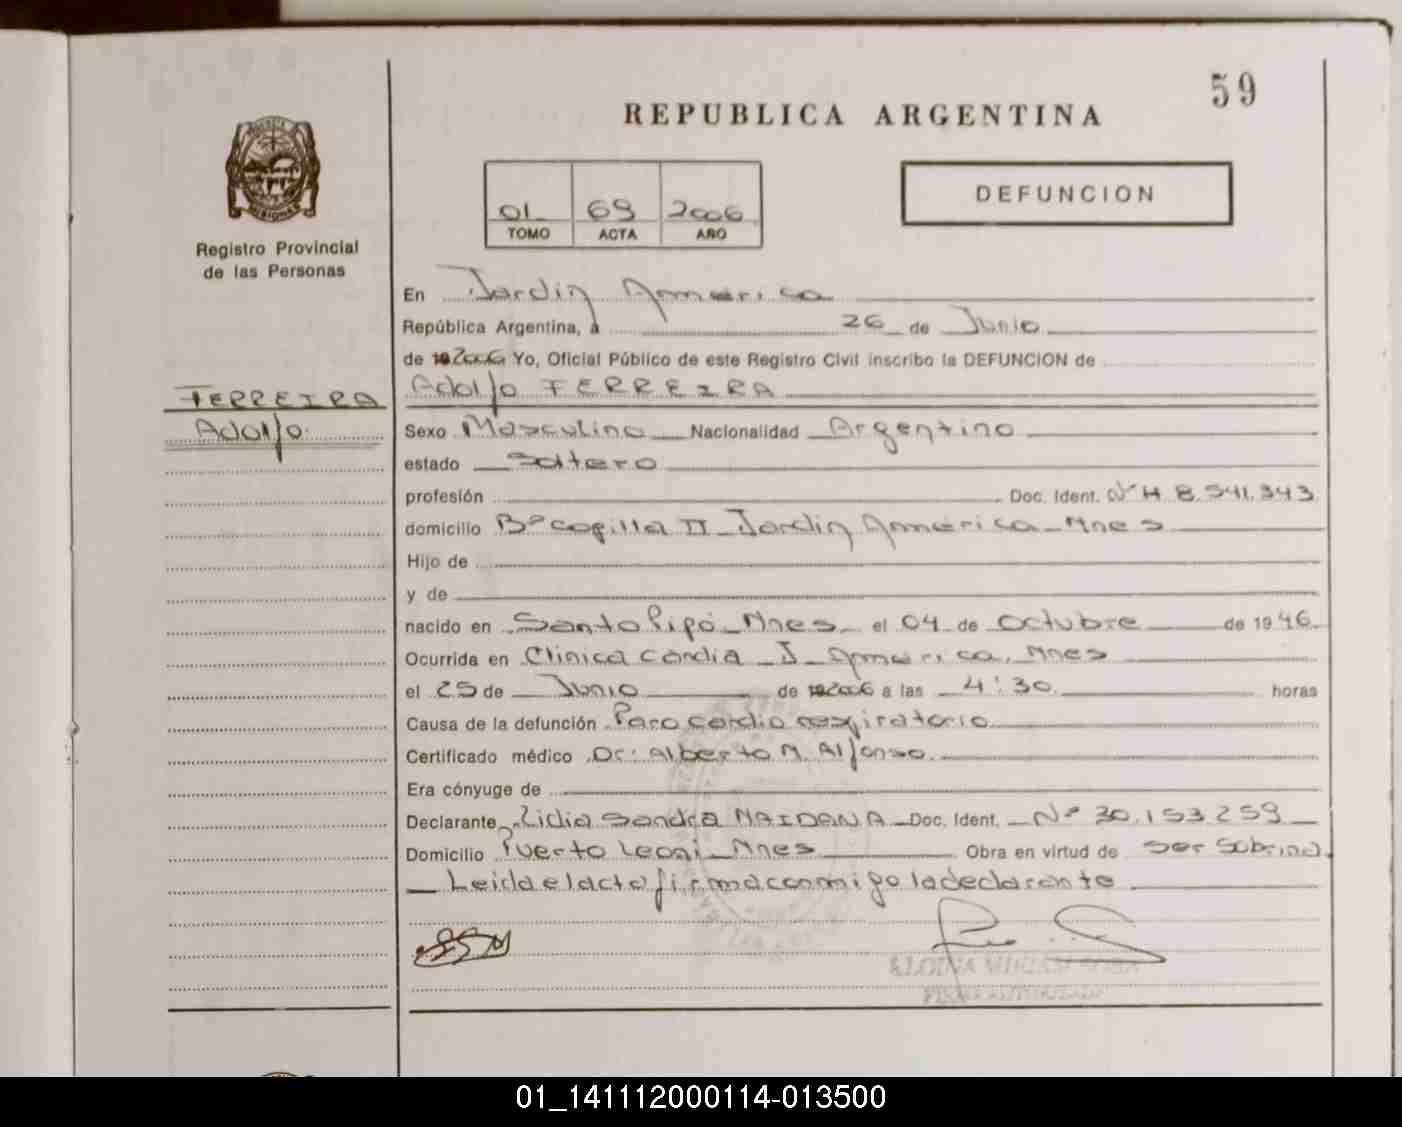 59
REPUBLICA ARGENTINA
01 69 2006
TOMO ACTA AÑO
DEFUNCION
MISIONES
Registro Provincial
de las Personas
En Jardin America
República Argentina, a 26 de Junio
de 2006 Yo, Oficial Público de este Registro Civil inscribo la DEFUNCION de
FERREIRA
Adolfo FERREIRA
Adolfo
Sexo Masculino Nacionalidad Argentino
estado Soltero
profesión Doc. Ident. Nº M 8.541.343
domicilio Bº copilla II - Jardin America - Mnes
Hijo de
y de
nacido en Santo Pipó - Mnes - el 04 de Octubre de 1946
Ocurrida en Clinica Cordia - J - America. Mnes
el 25 de Junio de 2006 a las 4:30 horas
Causa de la defunción Paro cardio respiratorio
Certificado médico Dr: Alberto M. Alfonso
Era cónyuge de
Declarante Lidia Sandra MAIDANA - Doc. Ident. - Nº 30.153.259
Domicilio Puerto Leoni - Mnes Obra en virtud de ser Sobrina
Leida el acta firma conmigo la declarante
01_141112000114-013500